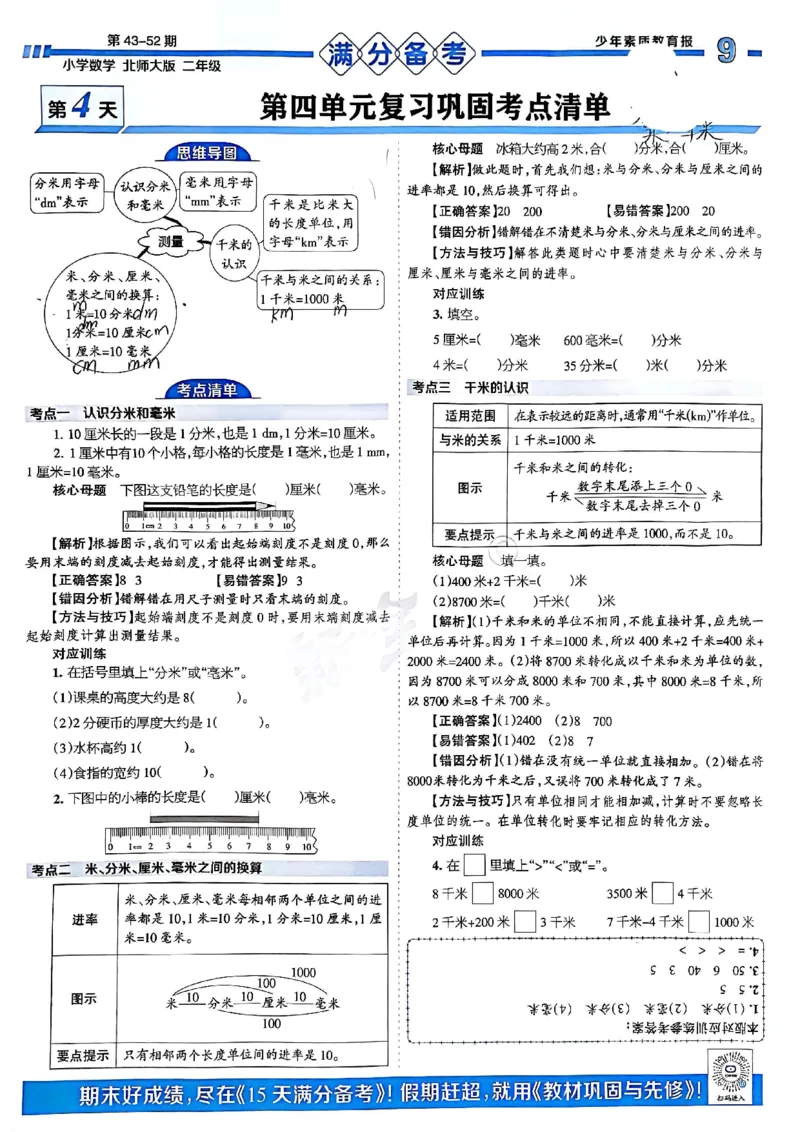 第 43-52 期
小学数学 北师大版 二年级
满分备考
少年素质教育报
9
第4天
第四单元复习巩固考点清单
思维导图
分米用字母“dm”表示
认识分米和毫米
毫米用字母“mm”表示
千米是比米大的长度单位,用字母“km”表示
测量
千米的认识
米、分米、厘米、毫米之间的换算:
1 米=10 分米
m dm
1分米=10 厘米
dm cm
1 厘米=10 毫米
cm mm
千米与米之间的关系:
1 千米=1000 米
km m
考点清单
考点一 认识分米和毫米
1. 10 厘米长的一段是 1 分米,也是 1 dm,1 分米=10 厘米。
2. 1 厘米中有10 个小格,每小格的长度是 1 毫米,也是 1 mm,
1 厘米=10 毫米。
核心母题 下图这支铅笔的长度是( )厘米( )毫米。
0 1cm 2 3 4 5 6 7 8 9 10
【解析】根据图示,我们可以看出起始端刻度不是刻度 0,那么
要用末端的刻度减去起始刻度,才能得出测量结果。
【正确答案】8 3 【易错答案】9 3
【错因分析】错解错在用尺子测量时只看末端的刻度。
【方法与技巧】起始端刻度不是刻度 0 时,要用末端刻度减去
起始刻度计算出测量结果。
对应训练
1. 在括号里填上“分米”或“毫米”。
(1)课桌的高度大约是 8( )。
(2)2 分硬币的厚度大约是 1( )。
(3)水杯高约 1( )。
(4)食指的宽约 10( )。
2. 下图中的小棒的长度是( )厘米( )毫米。
0 1cm 2 3 4 5 6 7 8 9 10
考点二 米、分米、厘米、毫米之间的换算
进率
米、分米、厘米、毫米每相邻两个单位之间的进
率都是 10,1 米=10 分米,1 分米=10 厘米,1 厘
米=10 毫米。
图示
1000
100
米 10 分米 10 厘米 10 毫米
100
要点提示 只有相邻两个长度单位间的进率是 10。
米 千米
核心母题 冰箱大约高 2 米,合( )分米,合( )厘米。
【解析】做此题时,首先我们想:米与分米、分米与厘米之间的
进率都是 10,然后换算可得出。
【正确答案】20 200 【易错答案】200 20
【错因分析】错解错在不清楚米与分米、分米与厘米之间的进率。
【方法与技巧】解答此类题时心中要清楚米与分米、分米与
厘米、厘米与毫米之间的进率。
对应训练
3. 填空。
5 厘米=( )毫米 600 毫米=( )分米
4 米=( )分米 35 分米=( )米( )分米
考点三 千米的认识
适用范围 在表示较远的距离时,通常用“千米(km)”作单位。
与米的关系 1 千米=1000 米
图示
千米和米之间的转化:
千米 数字末尾添上三个 0 米
数字末尾去掉三个 0
要点提示 千米与米之间的进率是 1000,而不是 10。
核心母题 填一填。
(1)400 米+2 千米=( )米
(2)8700 米=( )千米( )米
【解析】(1)千米和米的单位不相同,不能直接计算,应先统一
单位后再计算。因为 1 千米=1000 米,所以 400 米+2 千米=400 米+
2000 米=2400 米。(2)将 8700 米转化成以千米和米为单位的数,
因为 8700 米可以分成 8000 米和 700 米,其中 8000 米=8 千米,所
以 8700 米=8 千米 700 米。
【正确答案】(1)2400 (2)8 700
【易错答案】(1)402 (2)8 7
【错因分析】(1)错在没有统一单位就直接相加。(2)错在将
8000米转化为千米之后,又误将 700 米转化成了 7 米。
【方法与技巧】只有单位相同才能相加减,计算时不要忽略长
度单位的统一。在单位转化时要牢记相应的转化方法。
对应训练
4. 在□里填上“>”“<”或“=”。
8 千米□8000 米 3500 米□4 千米
2 千米+200 米□3 千米 7 千米-4 千米□1000 米
本版对应训练参考答案:
1. (1)分米 (2)毫米 (3)分米 (4)毫米
2. 5 5
3. 50 6 40 3 5
4. = < < >
期末好成绩,尽在《15 天满分备考》!假期赶超,就用《教材巩固与先修》!
扫码进入